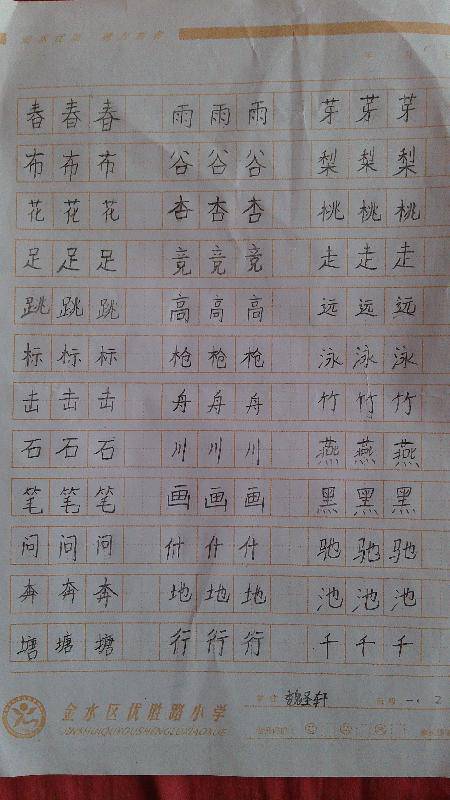 春春春 雨雨雨 芽芽芽
布布布 谷谷谷 梨梨梨
花花花 杏杏杏 桃桃桃
足足足 竞竞竞 走走走
跳跳跳 高高高 远远远
标标标 枪枪枪 泳泳泳
击击击 舟舟舟 竹竹竹
石石石 川川川 燕燕燕
笔笔笔 画画画 黑黑黑
问问问 什什什 驰驰驰
奔奔奔 地地地 池池池
塘塘塘 行行行 千千千
金水区优胜路小学
JINSHUIQUYOUSHENGLUXIAOXUE